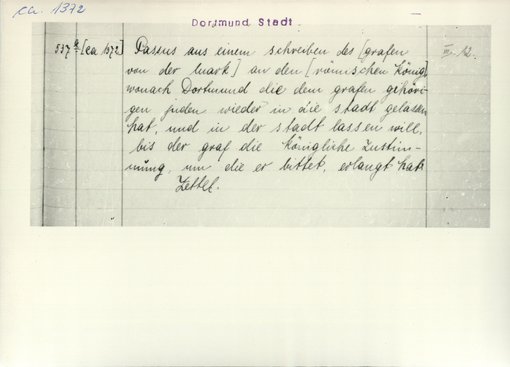 ca. 1372
Dortmund Stadt
537 a [ca 1372] Passus aus einem schreiben des [grafen
von der mark] an den [römischen König]
wonach Dortmund die dem grafen gehöri-
gen juden wieder in die stadt gelassen
hat, und in der stadt lassen will,
bis der graf die königliche zustim-
mung, um die er bittet, erlangt hat.
Zettel.